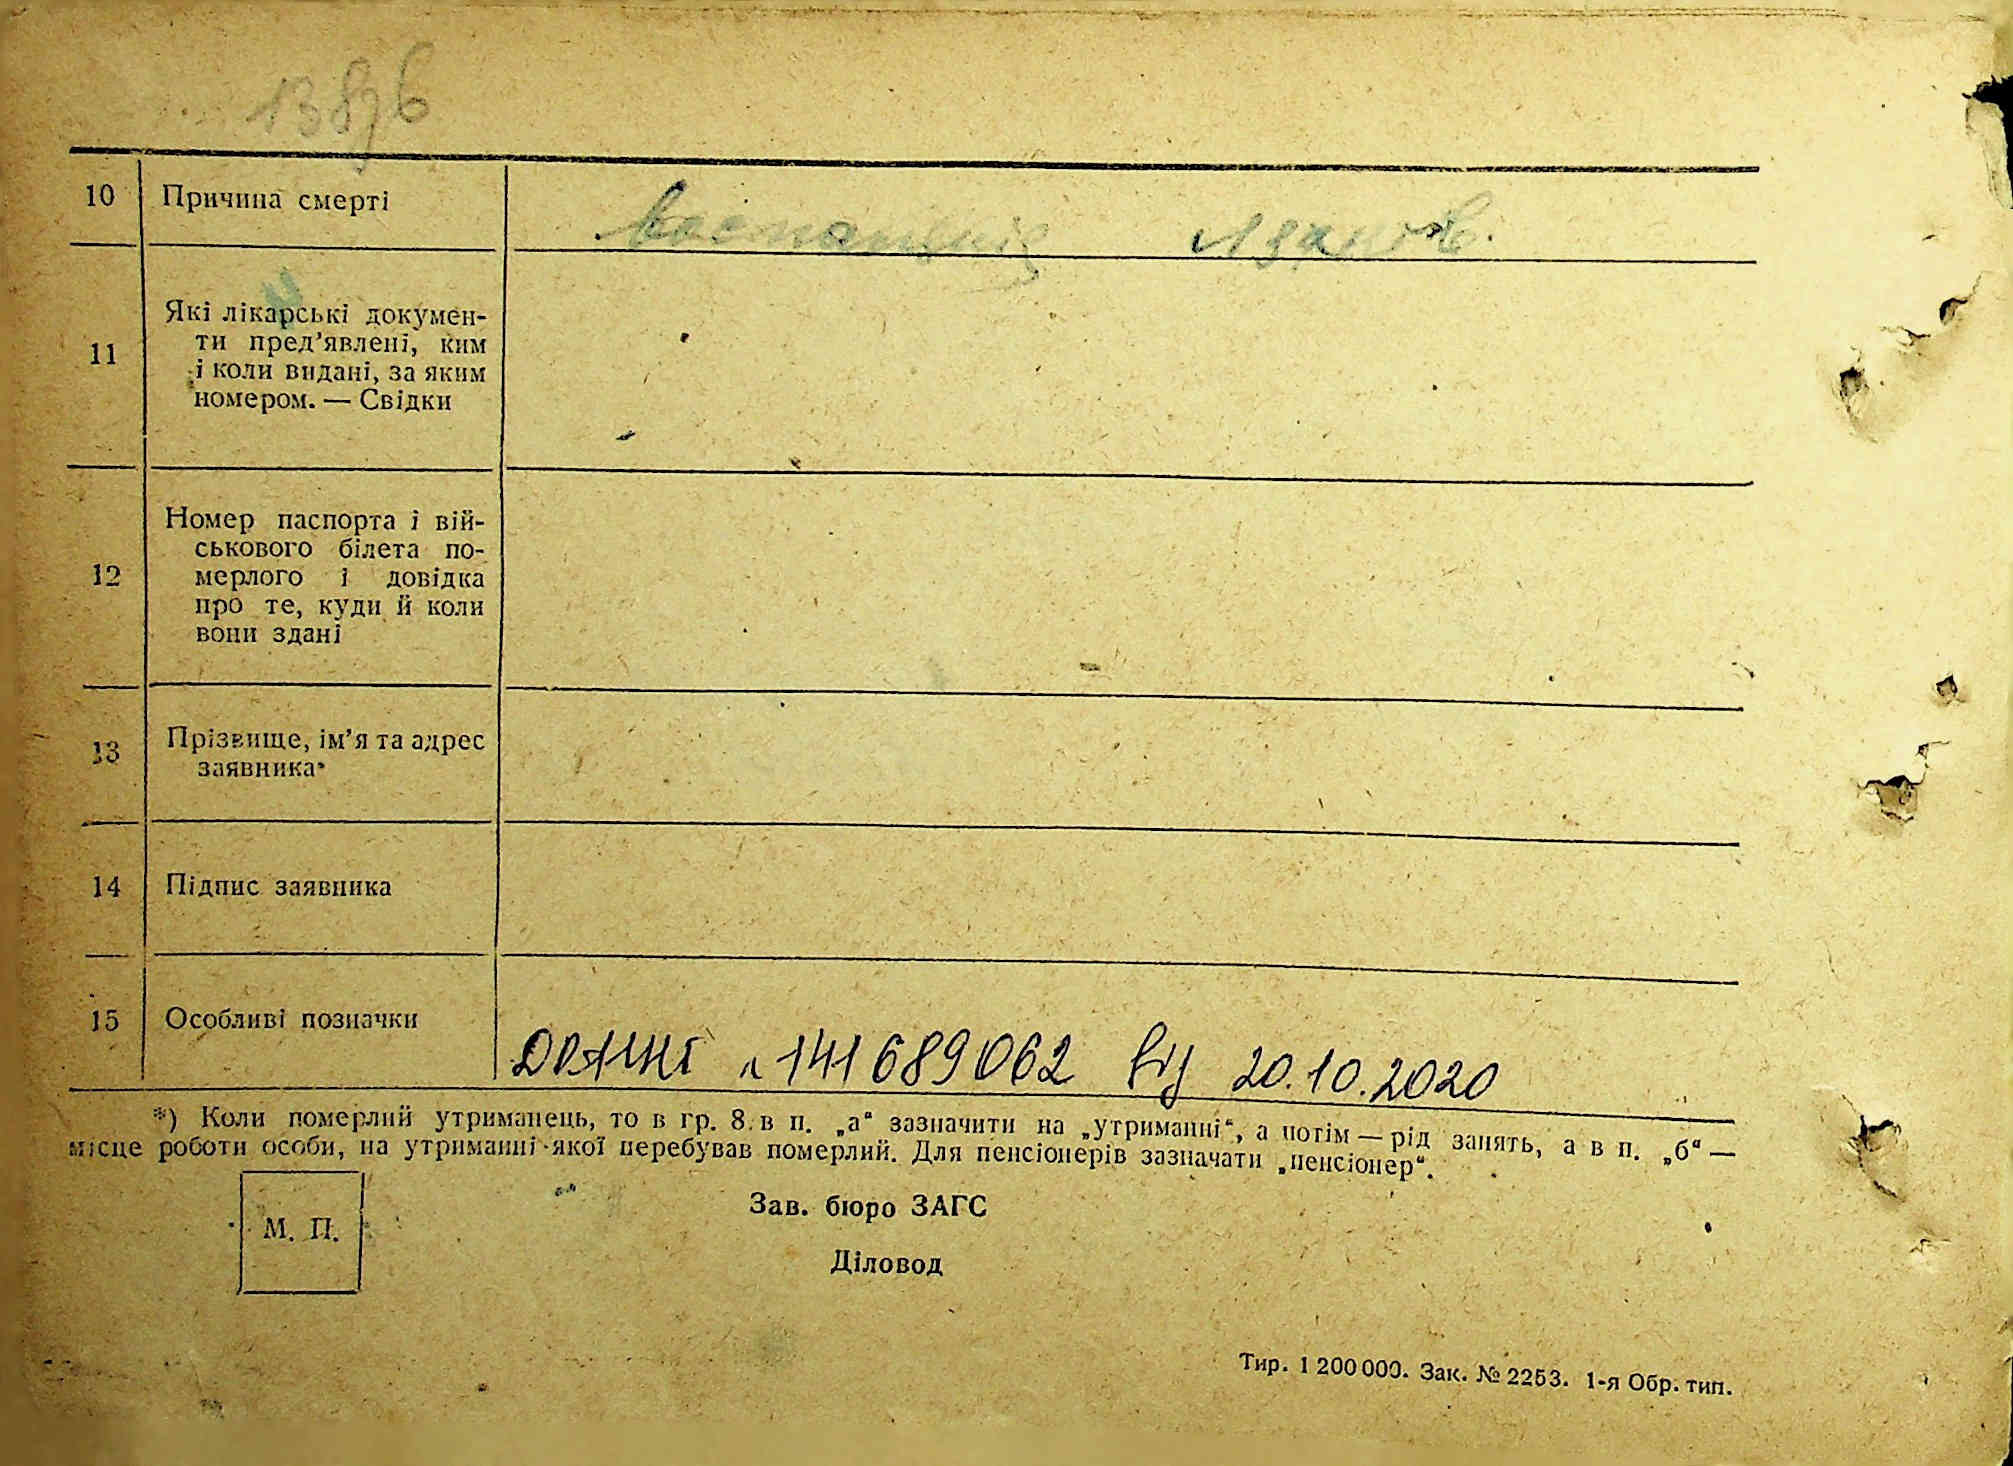 10 Причина смерті
11 Які лікарські докумен-
ти пред’явлені, ким
і коли видані, за яким
номером. — Свідки
12 Номер паспорта і вій-
ськового білета по-
мерлого і довідка
про те, куди й коли
вони здані
13 Прізвище, ім’я та адрес
заявника*
14 Підпис заявника
15 Особливі позначки
141689062 від 20.10.2020
*) Коли померлий утриманець, то в гр. 8. в п. „а“ зазначити на „утриманні“, а потім — рід занять, а в п. „б“ —
місце роботи особи, на утриманні якої перебував померлий. Для пенсіонерів зазначати „пенсіонер“.
М. П.
Зав. бюро ЗАГС
Діловод
Тир. 1 200 000. Зак. № 2253. 1-я Обр. тип.